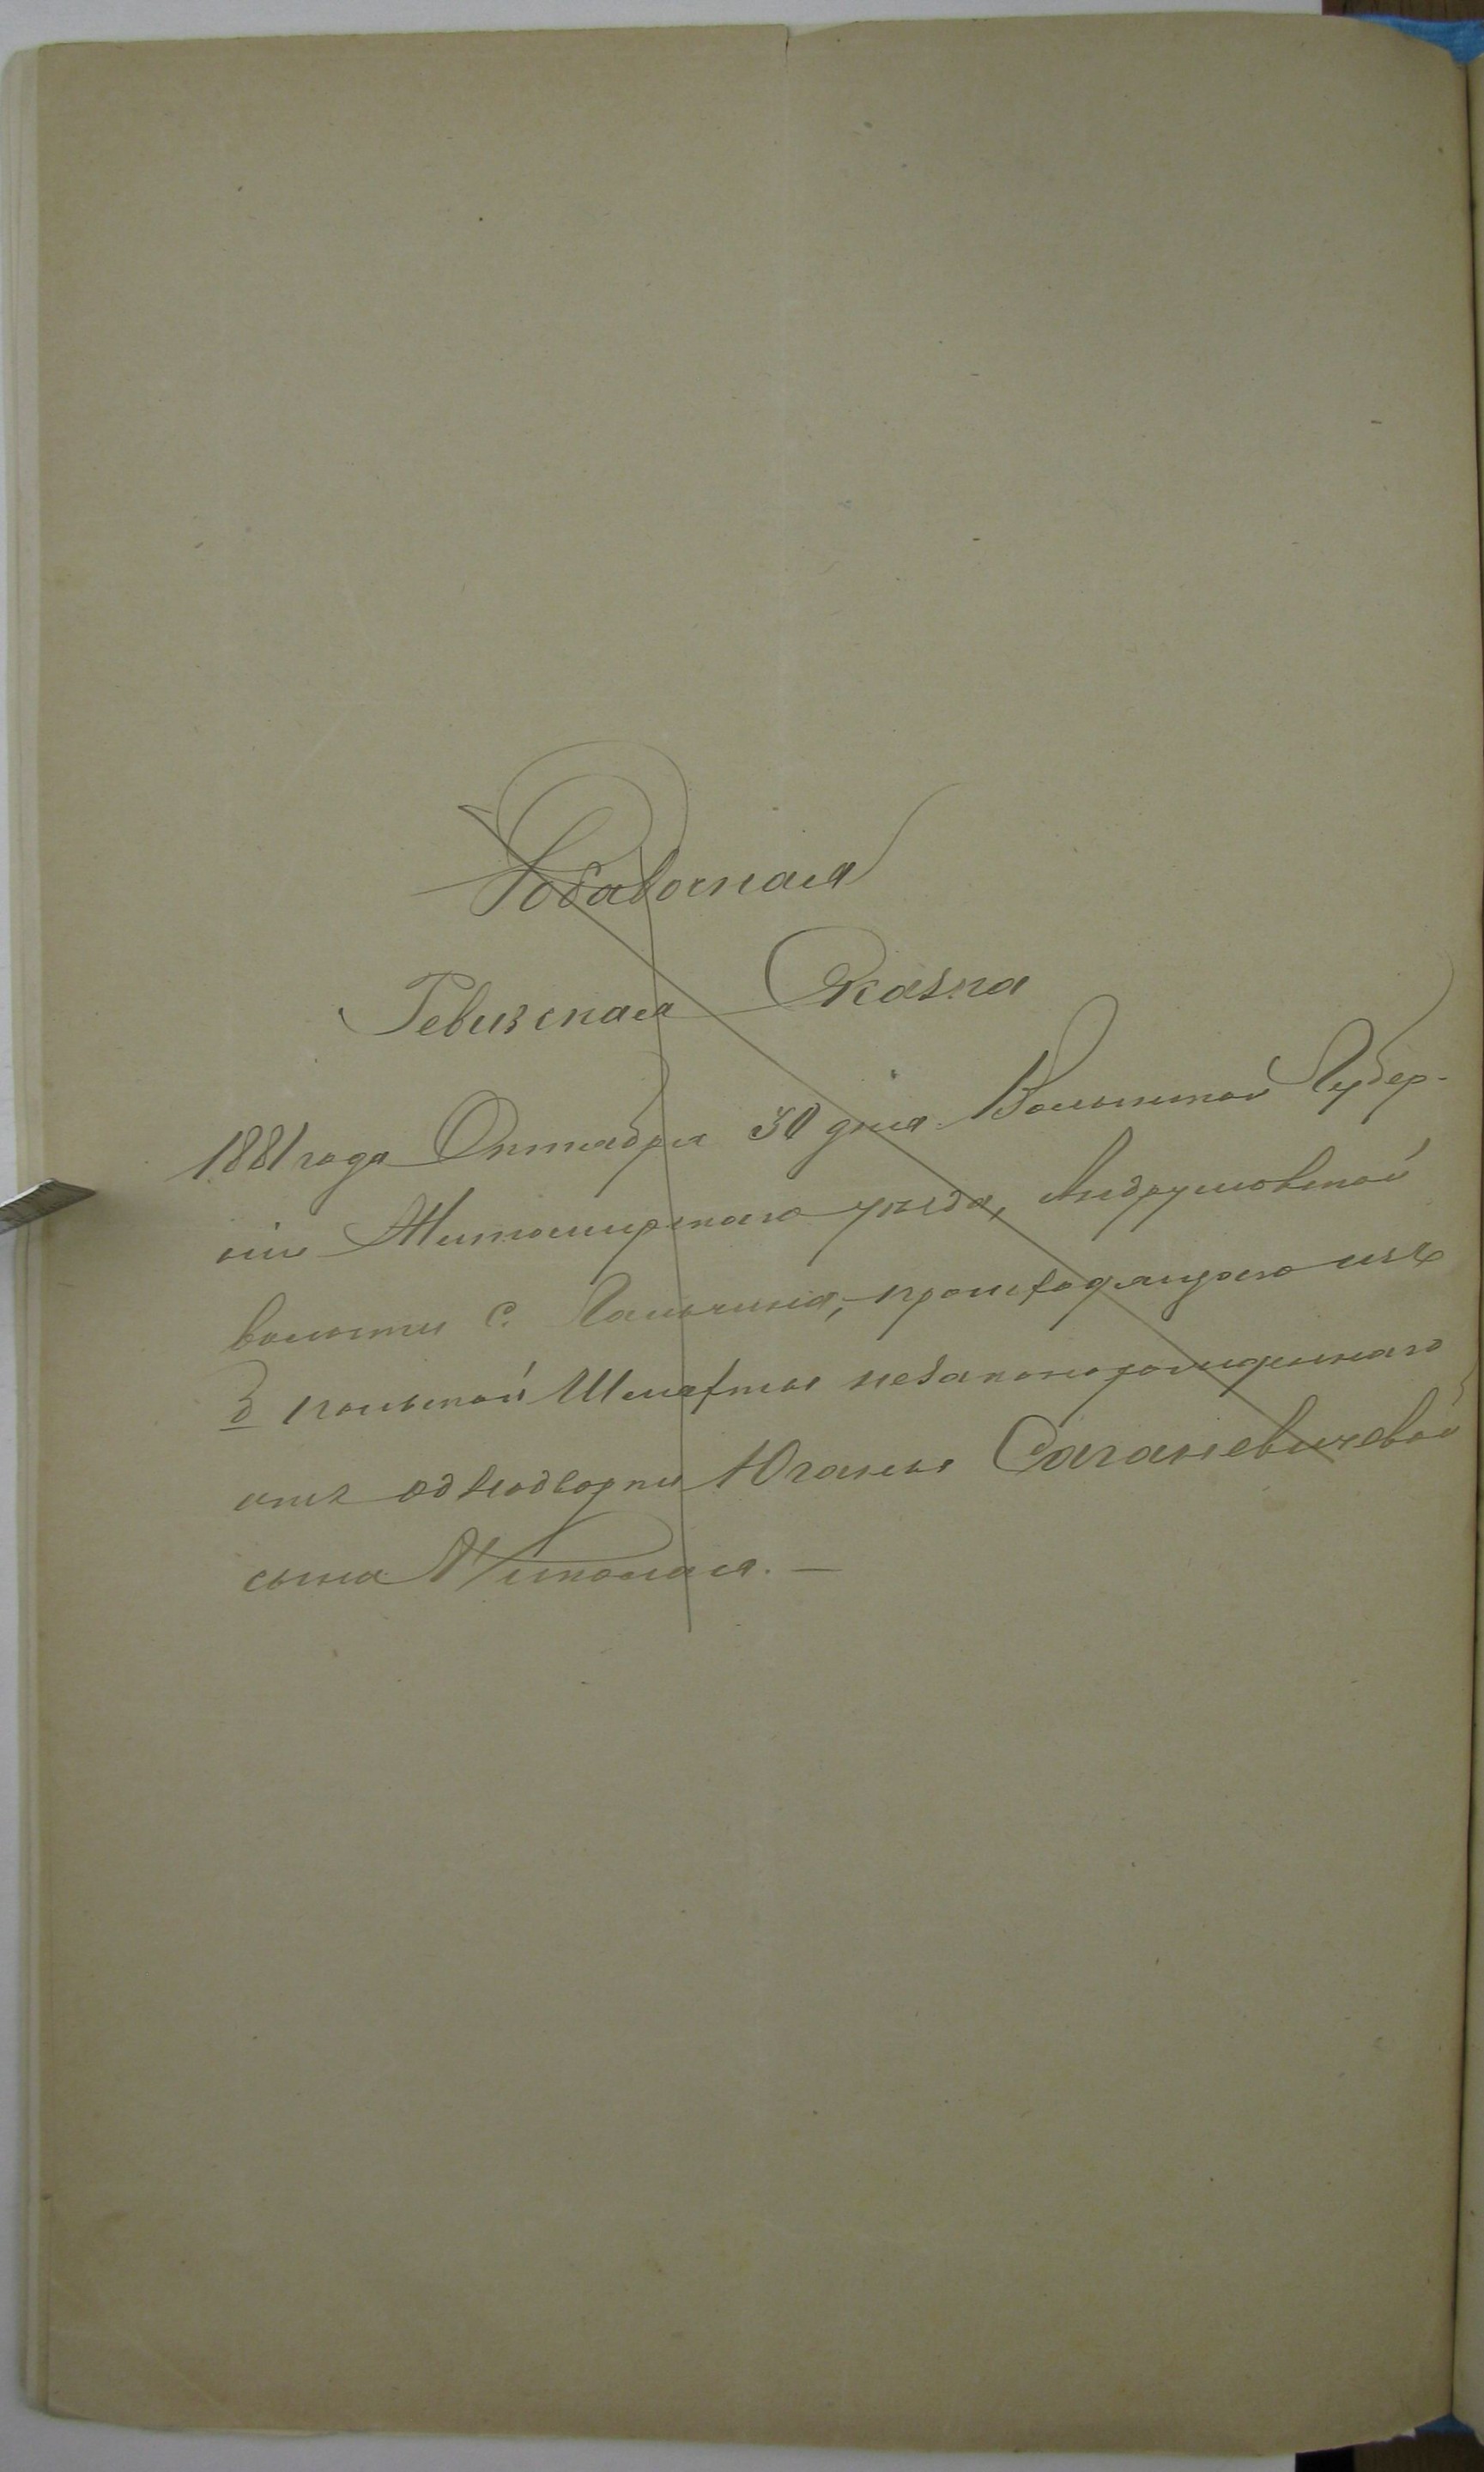 Добавочная
Ревизская Сказка
1881 года Октября 30 дня Волынской Губер-
нiи Житомирскаго уезда, Андрушовской
волости с. Гальчина, происходящаго изъ
б польской Шляхты незаконорожденнаго
отъ однодворки Юганы Саганевичевой
сына Николая. —